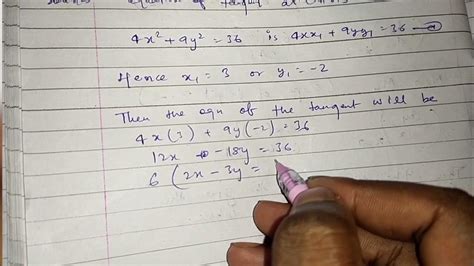 equation of tangent at
4x² + 9y² = 36 is 4xx₁ + 9yy₁ = 36 —
Hence x₁ = 3 or y₁ = -2
Then the eqn of the tangent will be
4x(3) + 9y(-2) = 36
12x - 18y = 36
6 (2x - 3y =